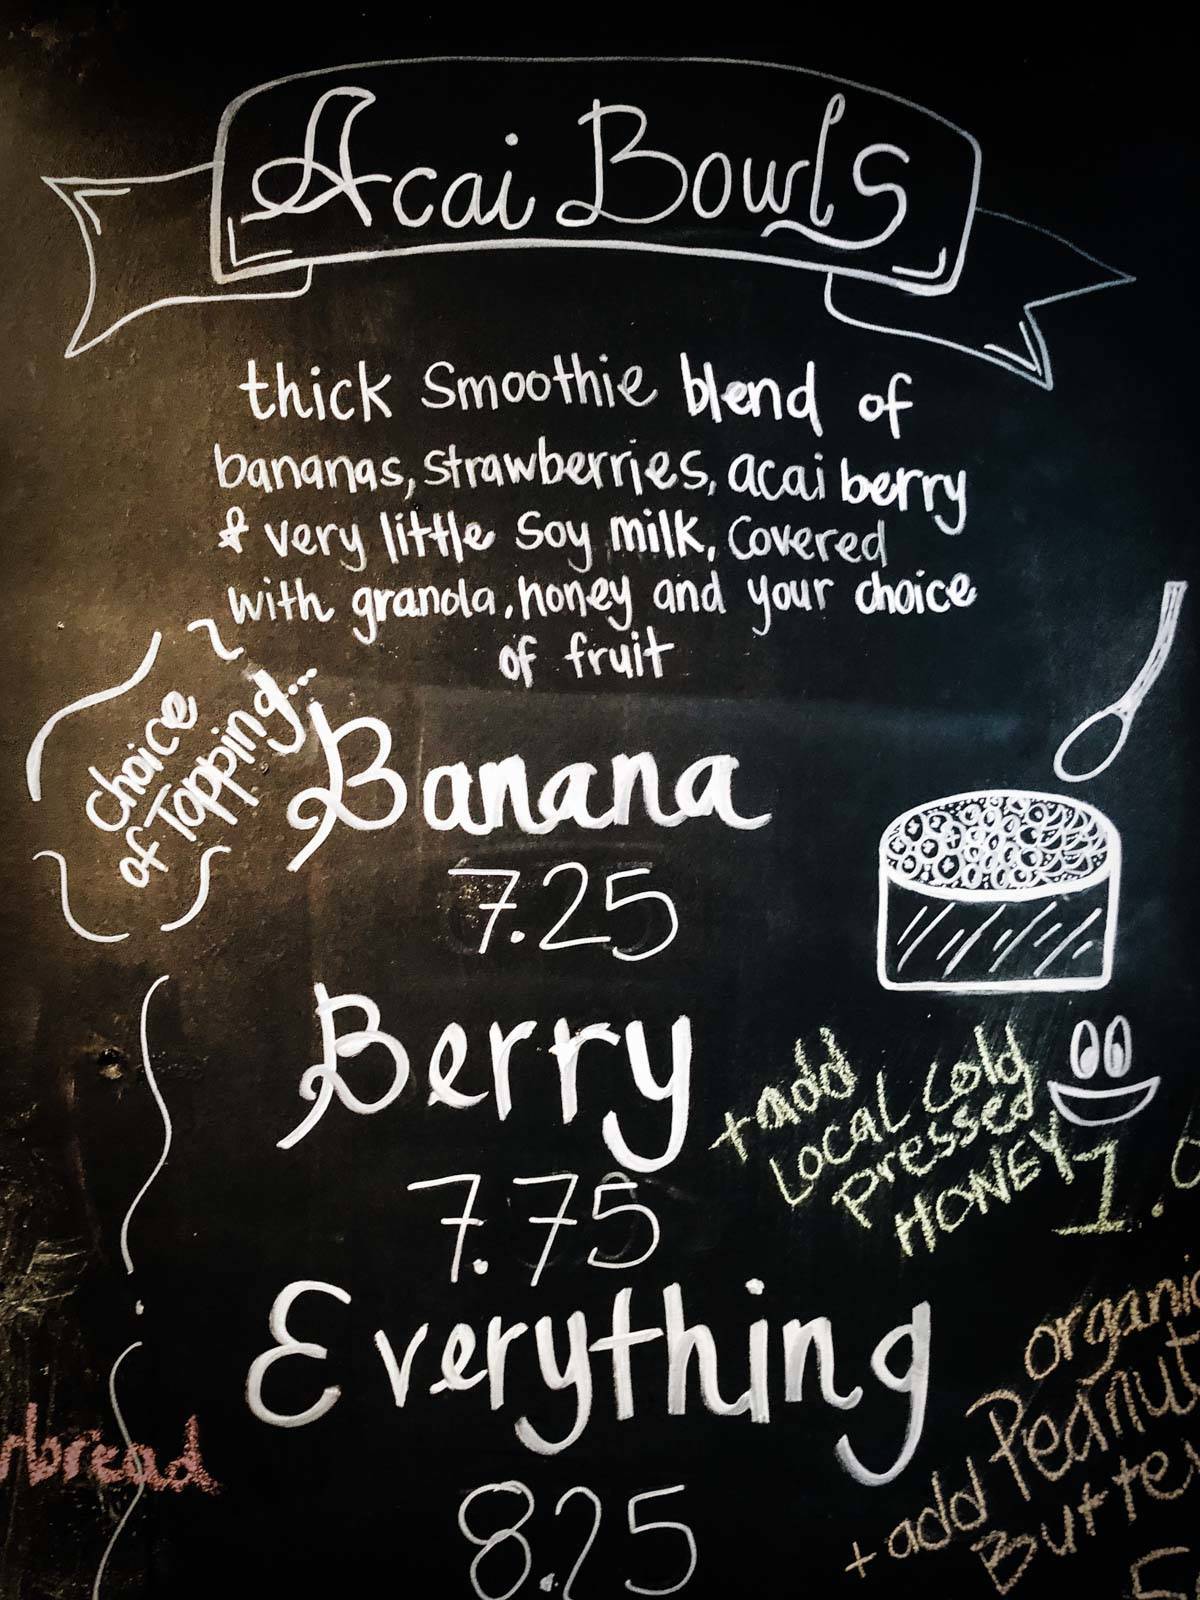 Acai Bowls
thick Smoothie blend of
bananas, strawberries, acai berry
& very little Soy milk, Covered
with granola, honey and your choice
of fruit
Choice
of Topping...
Banana
7.25
Berry
7.75
+ add
Local Cold
Pressed
HONEY
Everything
8.25
organic
+ add Peanut
Butter